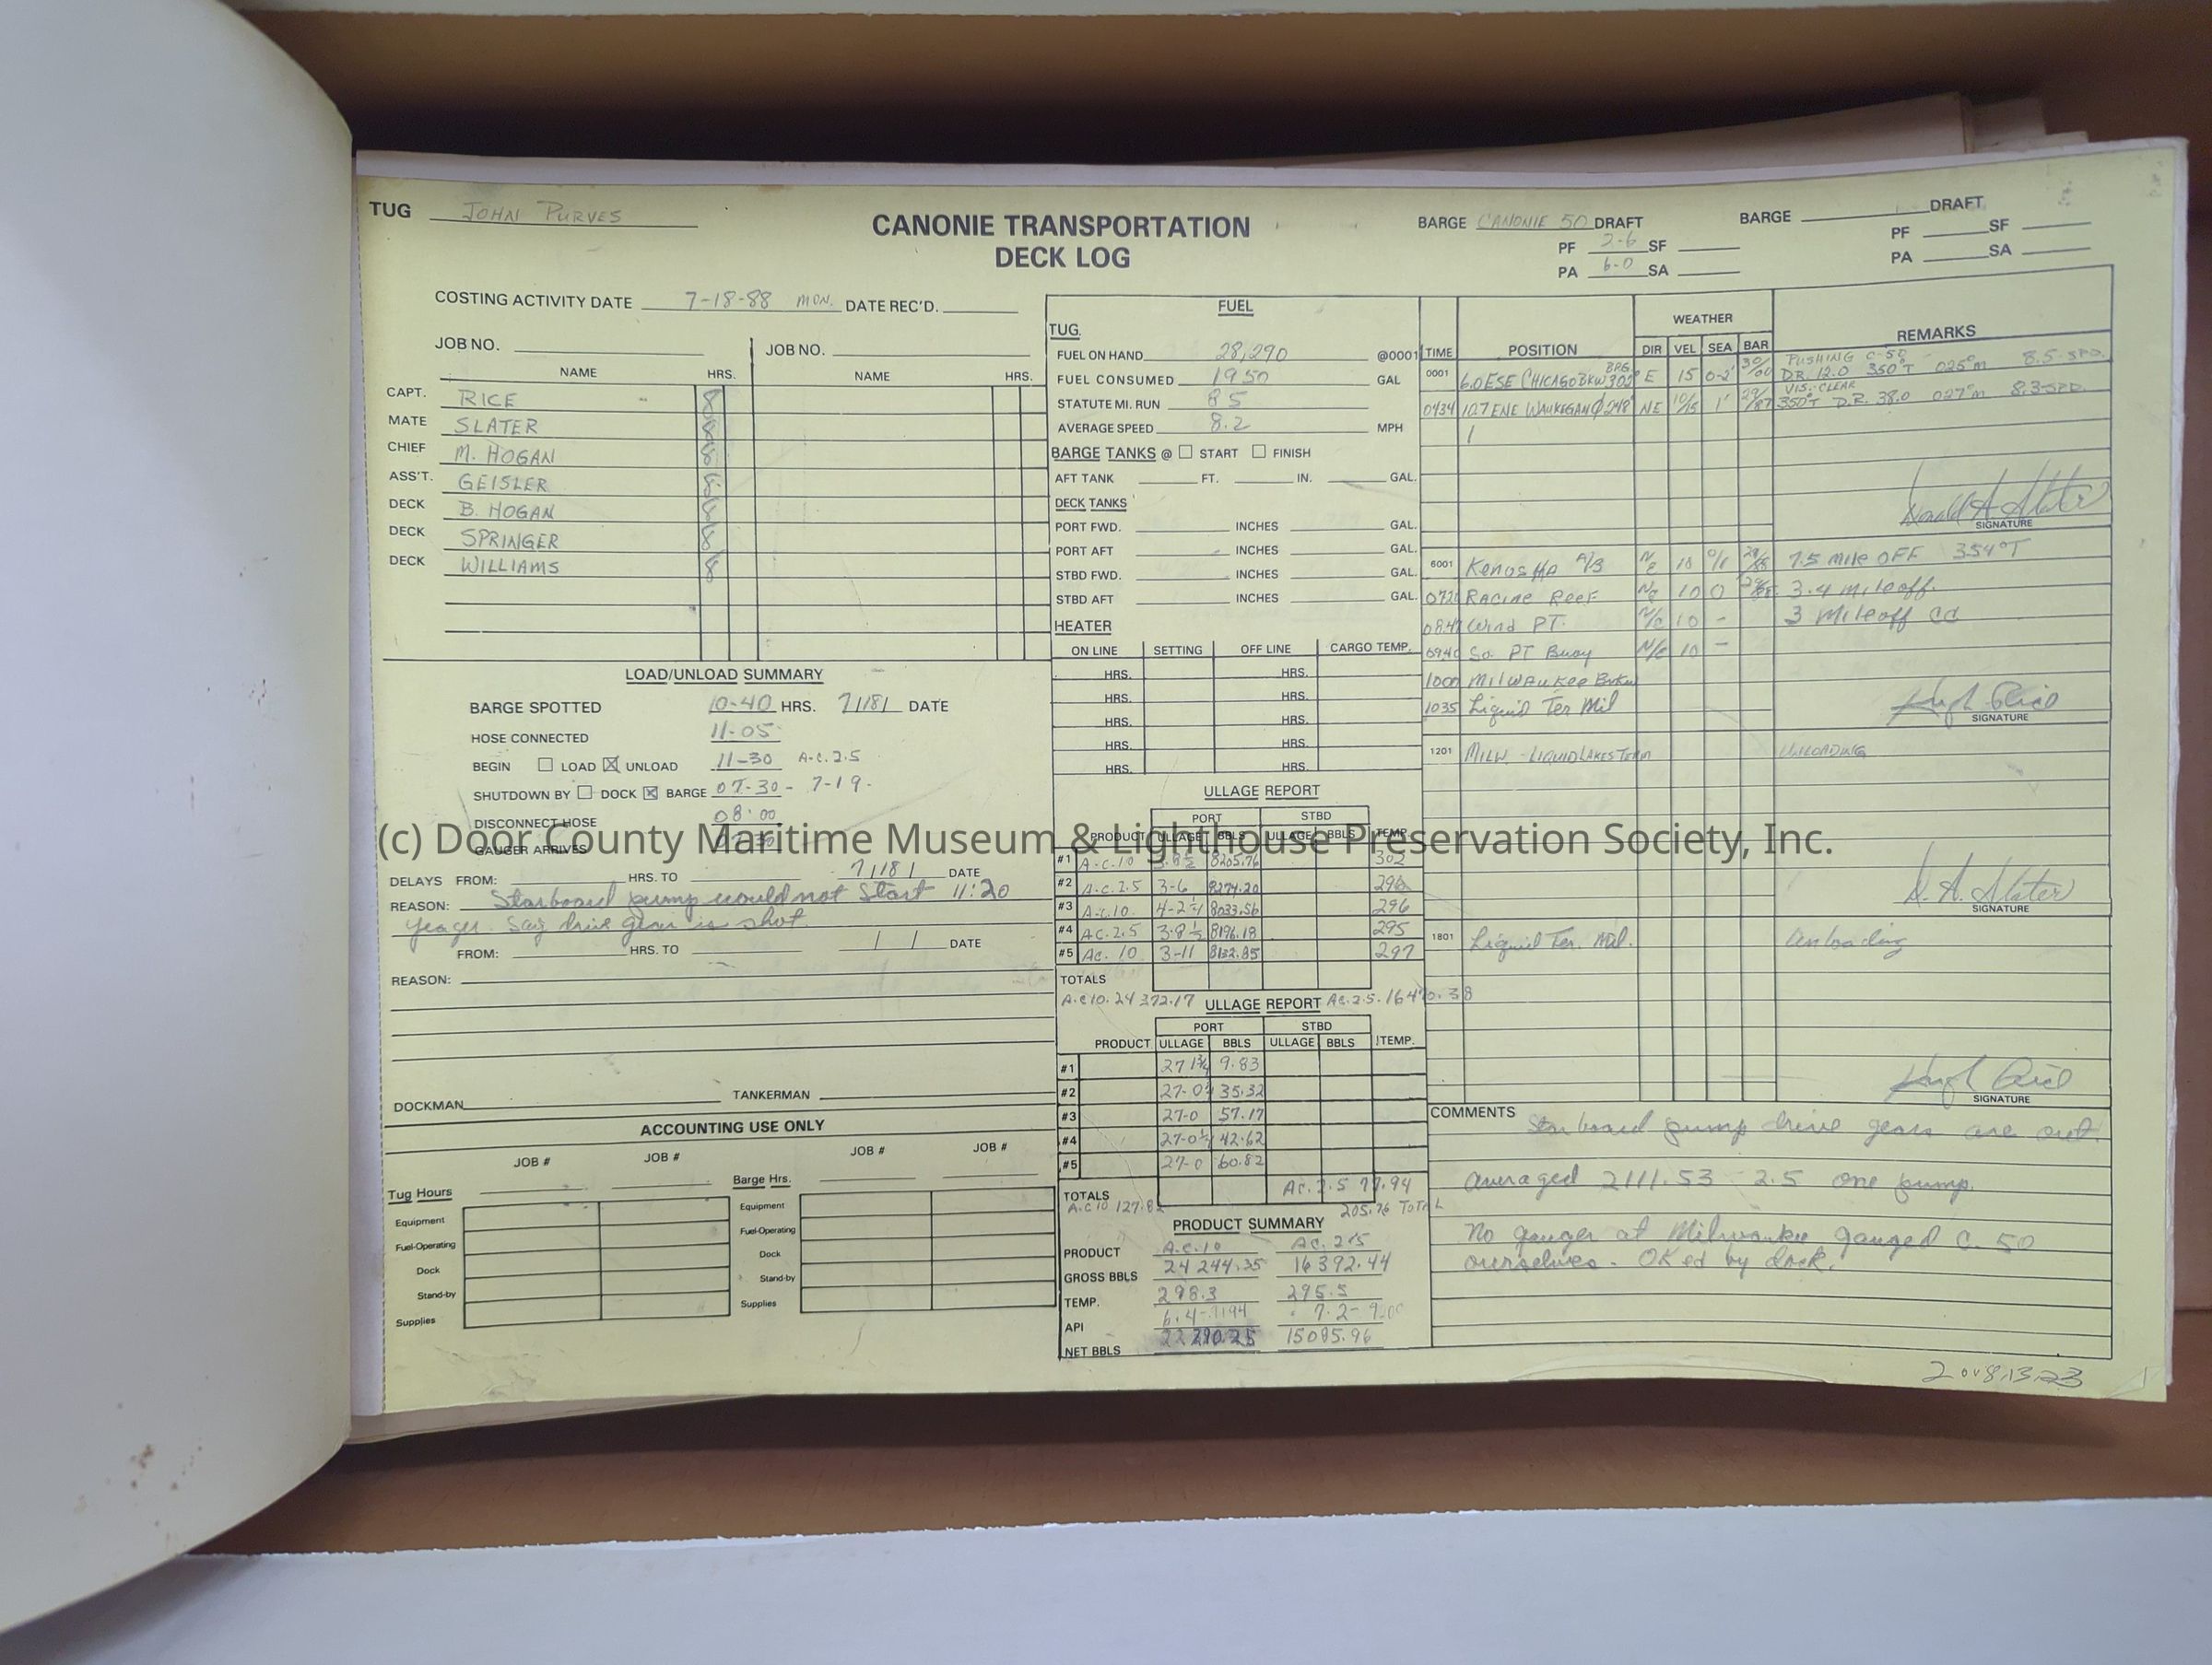 TUG JOHN PURVES
CANONIE TRANSPORTATION
DECK LOG
BARGE CANONIE 50 DRAFT
PF 2-6 SF
PA 6-0 SA
BARGE DRAFT
PF SF
PA SA
COSTING ACTIVITY DATE 7-18-88 MON. DATE REC'D.
JOB NO. JOB NO.
NAME HRS. NAME HRS.
CAPT. RICE 8
MATE SLATER 8
CHIEF M. HOGAN 8
ASS'T. GEISLER 8
DECK B. HOGAN 8
DECK SPRINGER 8
DECK WILLIAMS 8
LOAD/UNLOAD SUMMARY
BARGE SPOTTED 10-40 HRS. 7/18/ DATE
HOSE CONNECTED 11-05
BEGIN LOAD UNLOAD 11-30 A.C. 2.5
SHUTDOWN BY DOCK BARGE 07-30 - 7-19-
DISCONNECT HOSE 08:00
GAUGER ARRIVES
DELAYS FROM: HRS. TO 7/18/ DATE
REASON: Starboard pump would not Start 11:20
Yeager. Say drive gear is shot.
FROM: HRS. TO / / DATE
REASON:
DOCKMAN TANKERMAN
ACCOUNTING USE ONLY
JOB # JOB # JOB # JOB #
Tug Hours Barge Hrs.
Equipment Equipment
Fuel-Operating Fuel-Operating
Dock Dock
Stand-by Stand-by
Supplies Supplies
FUEL
TUG.
FUEL ON HAND 28,290 @0001
FUEL CONSUMED 1950 GAL
STATUTE MI. RUN 85
AVERAGE SPEED 8.2 MPH
BARGE TANKS @ START FINISH
AFT TANK FT. IN. GAL.
DECK TANKS
PORT FWD. INCHES GAL.
PORT AFT INCHES GAL.
STBD FWD. INCHES GAL.
STBD AFT INCHES GAL.
HEATER
ON LINE SETTING OFF LINE CARGO TEMP.
HRS. HRS.
HRS. HRS.
HRS. HRS.
HRS. HRS.
HRS. HRS.
ULLAGE REPORT
PORT STBD
PRODUCT ULLAGE BBLS ULLAGE BBLS TEMP.
#1 A.C.10 3-8½ 8205.76 302
#2 A.C.2.5 3-6 8274.20 296
#3 A.C.10. 8033.56 296
#4 AC. 2.5 3-8½ 8196.18 295
#5 Ac. 10 3-11 8132.85 297
TOTALS
A.C10. 24 372.17 ULLAGE REPORT AC. 2.5. 16470.38
PORT STBD
PRODUCT ULLAGE BBLS ULLAGE BBLS TEMP.
#1 9.83
#2 35.32
#3 27-0 57.17
#4 27-0½ 42.62
#5 27-0 60.82
AC. 2.5 77.94
TOTALS
A.C 10 127.82 205.76 TOTAL
PRODUCT SUMMARY
PRODUCT A.C.10 AC. 2.5
GROSS BBLS 24 244.35 16 392.44
TEMP. 298.3 295.5
API 6.4-.9194 7.2-
NET BBLS 22 290.25 15085.96
TIME POSITION WEATHER REMARKS
DIR VEL SEA BAR
0001 6.0 ESE CHICAGO BKW BRG. 302° E 15 0-2' 30/00 PUSHING C-50
DR. 12.0 350°T 025°m 8.5-SPD.
VIS.-CLEAR
0434 10.7 ENE WAUKEGAN 248° NE 10/15 1' 29/87 350°T D.R. 38.0 027°m 8.3-SPD.
Donald A. Slater
SIGNATURE
6001 Kenosha A/B N/E 10 0/1 7.5 mile OFF 354°T
Racine Reef NE 10 0 3.4 mile off.
0847 Wind PT. N/E 10 - 3 Mile off
0940 So. PT Buoy N/E 10 -
1000 Milwaukee Brkw
1035 Liquid Ter Mil
Hugh Rice
SIGNATURE
1201 MILW. - LIQUID LAKES TERM UNLOADING
D. A. Slater
SIGNATURE
1801 Liquid Ter. Mil. Unloading
Hugh Rice
SIGNATURE
COMMENTS Starboard pump drive gears are out.
averaged 2111.53 - 2.5 one pump.
No gauger at Milwaukee gauged C-50
ourselves. OKed by dock.
2008.13.23
(c) Door County Maritime Museum & Lighthouse Preservation Society, Inc.